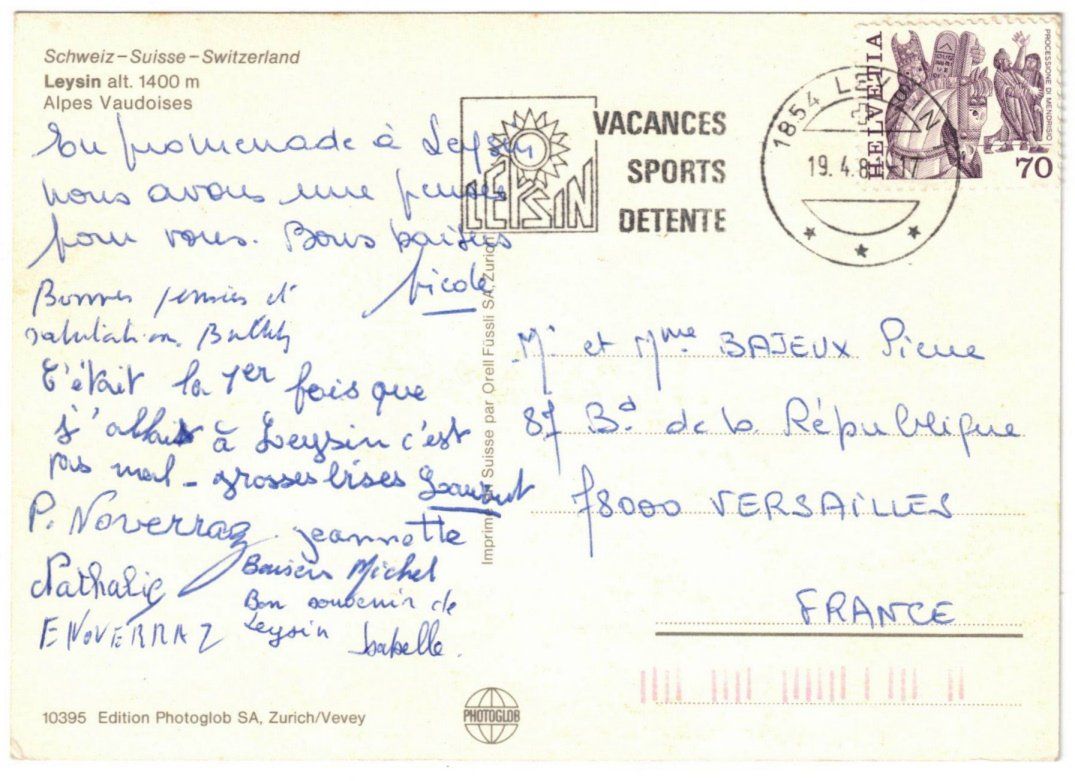 Schweiz–Suisse–Switzerland
Leysin alt. 1400 m
Alpes Vaudoises
En promenade à Leysin
nous avons une pensée
pour vous. Bons baisers
Nicole
Bonnes pensées et
salutation.
C'était la 1er fois que
j'allais à Leysin c'est
pas mal - grosses bises Laurent
P. Noverraz jeannette
Nathalie
Baisers Michel
Bon souvenir de
Leysin Isabelle.
E NOVERRAZ
10395 Edition Photoglob SA, Zurich/Vevey
PHOTOGLOB
Imprimé en Suisse par Orell Füssli SA, Zurich
LEYSIN
VACANCES
SPORTS
DETENTE
1854 LEYSIN
19.4.8
HELVETIA
PROCESSIONE DI MENDRISIO
70
Mr et Mme BAJEUX Pierre
87 Bd de la République
78000 VERSAILLES
FRANCE